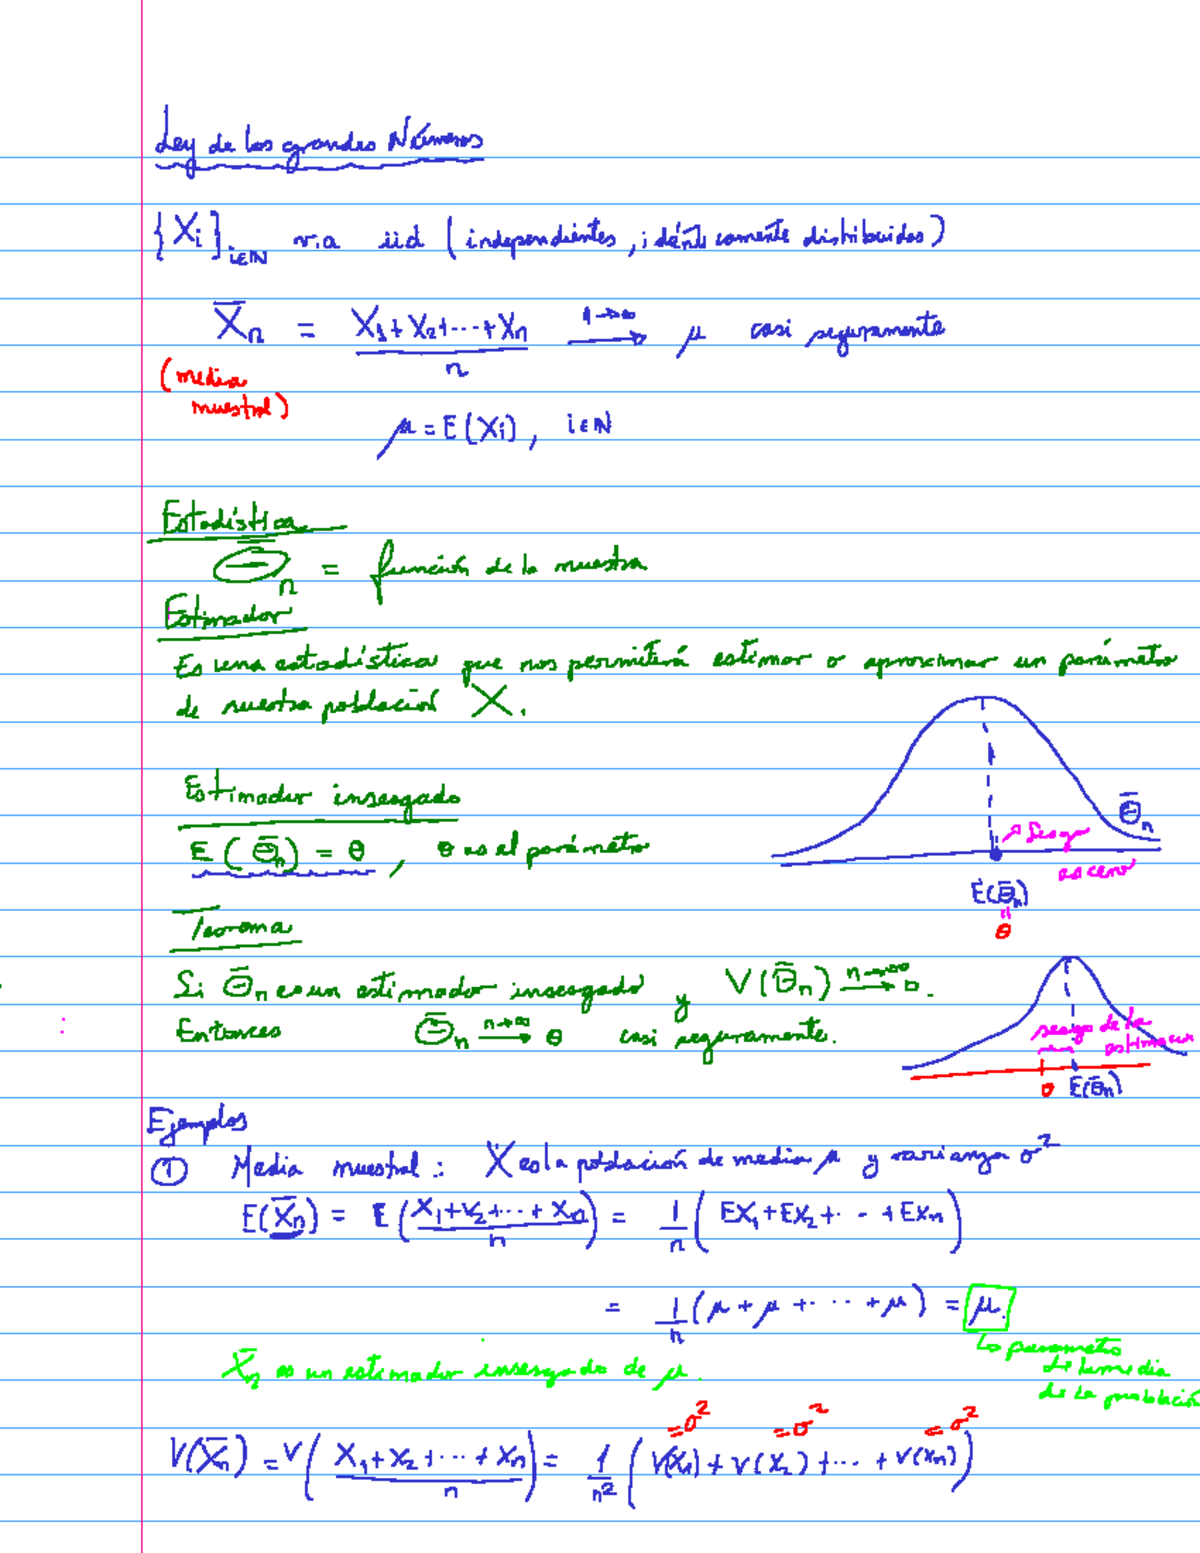 Ley de los grandes Números
{Xi}i∈N v.a iid (independientes, idénticamente distribuidas)
X̄n = (X1+X2+···+Xn)/n →(n→∞) μ casi seguramente
(media
muestral)
μ = E(Xi), i∈N
Estadística
Θ̄n = función de la muestra
Estimador
Es una estadística que nos permitirá estimar o aproximar un parámetro
de nuestra población X.
Estimador insesgado
E(Θ̄n) = θ, θ es el parámetro
Θ̄n
Sesgo
es cero
E(Θ̄n)
=
θ
Teorema
Si Θ̄n es un estimador insesgado y V(Θ̄n) →(n→∞) 0.
Entonces Θ̄n →(n→∞) θ casi seguramente.
sesgo de la
θ E(Θ̄n)
Ejemplos
① Media muestral: X es la población de media μ y varianza σ²
E(X̄n) = E((X1+X2+···+Xn)/n) = 1/n (EX1+EX2+···+EXn)
= 1/n (μ+μ+···+μ) = μ.
parametro
de la media
de la población
X̄n es un estimador insesgado de μ.
=σ² =σ² =σ²
V(X̄n) = V((X1+X2+···+Xn)/n) = 1/n² (V(X1)+V(X2)+···+V(Xn))